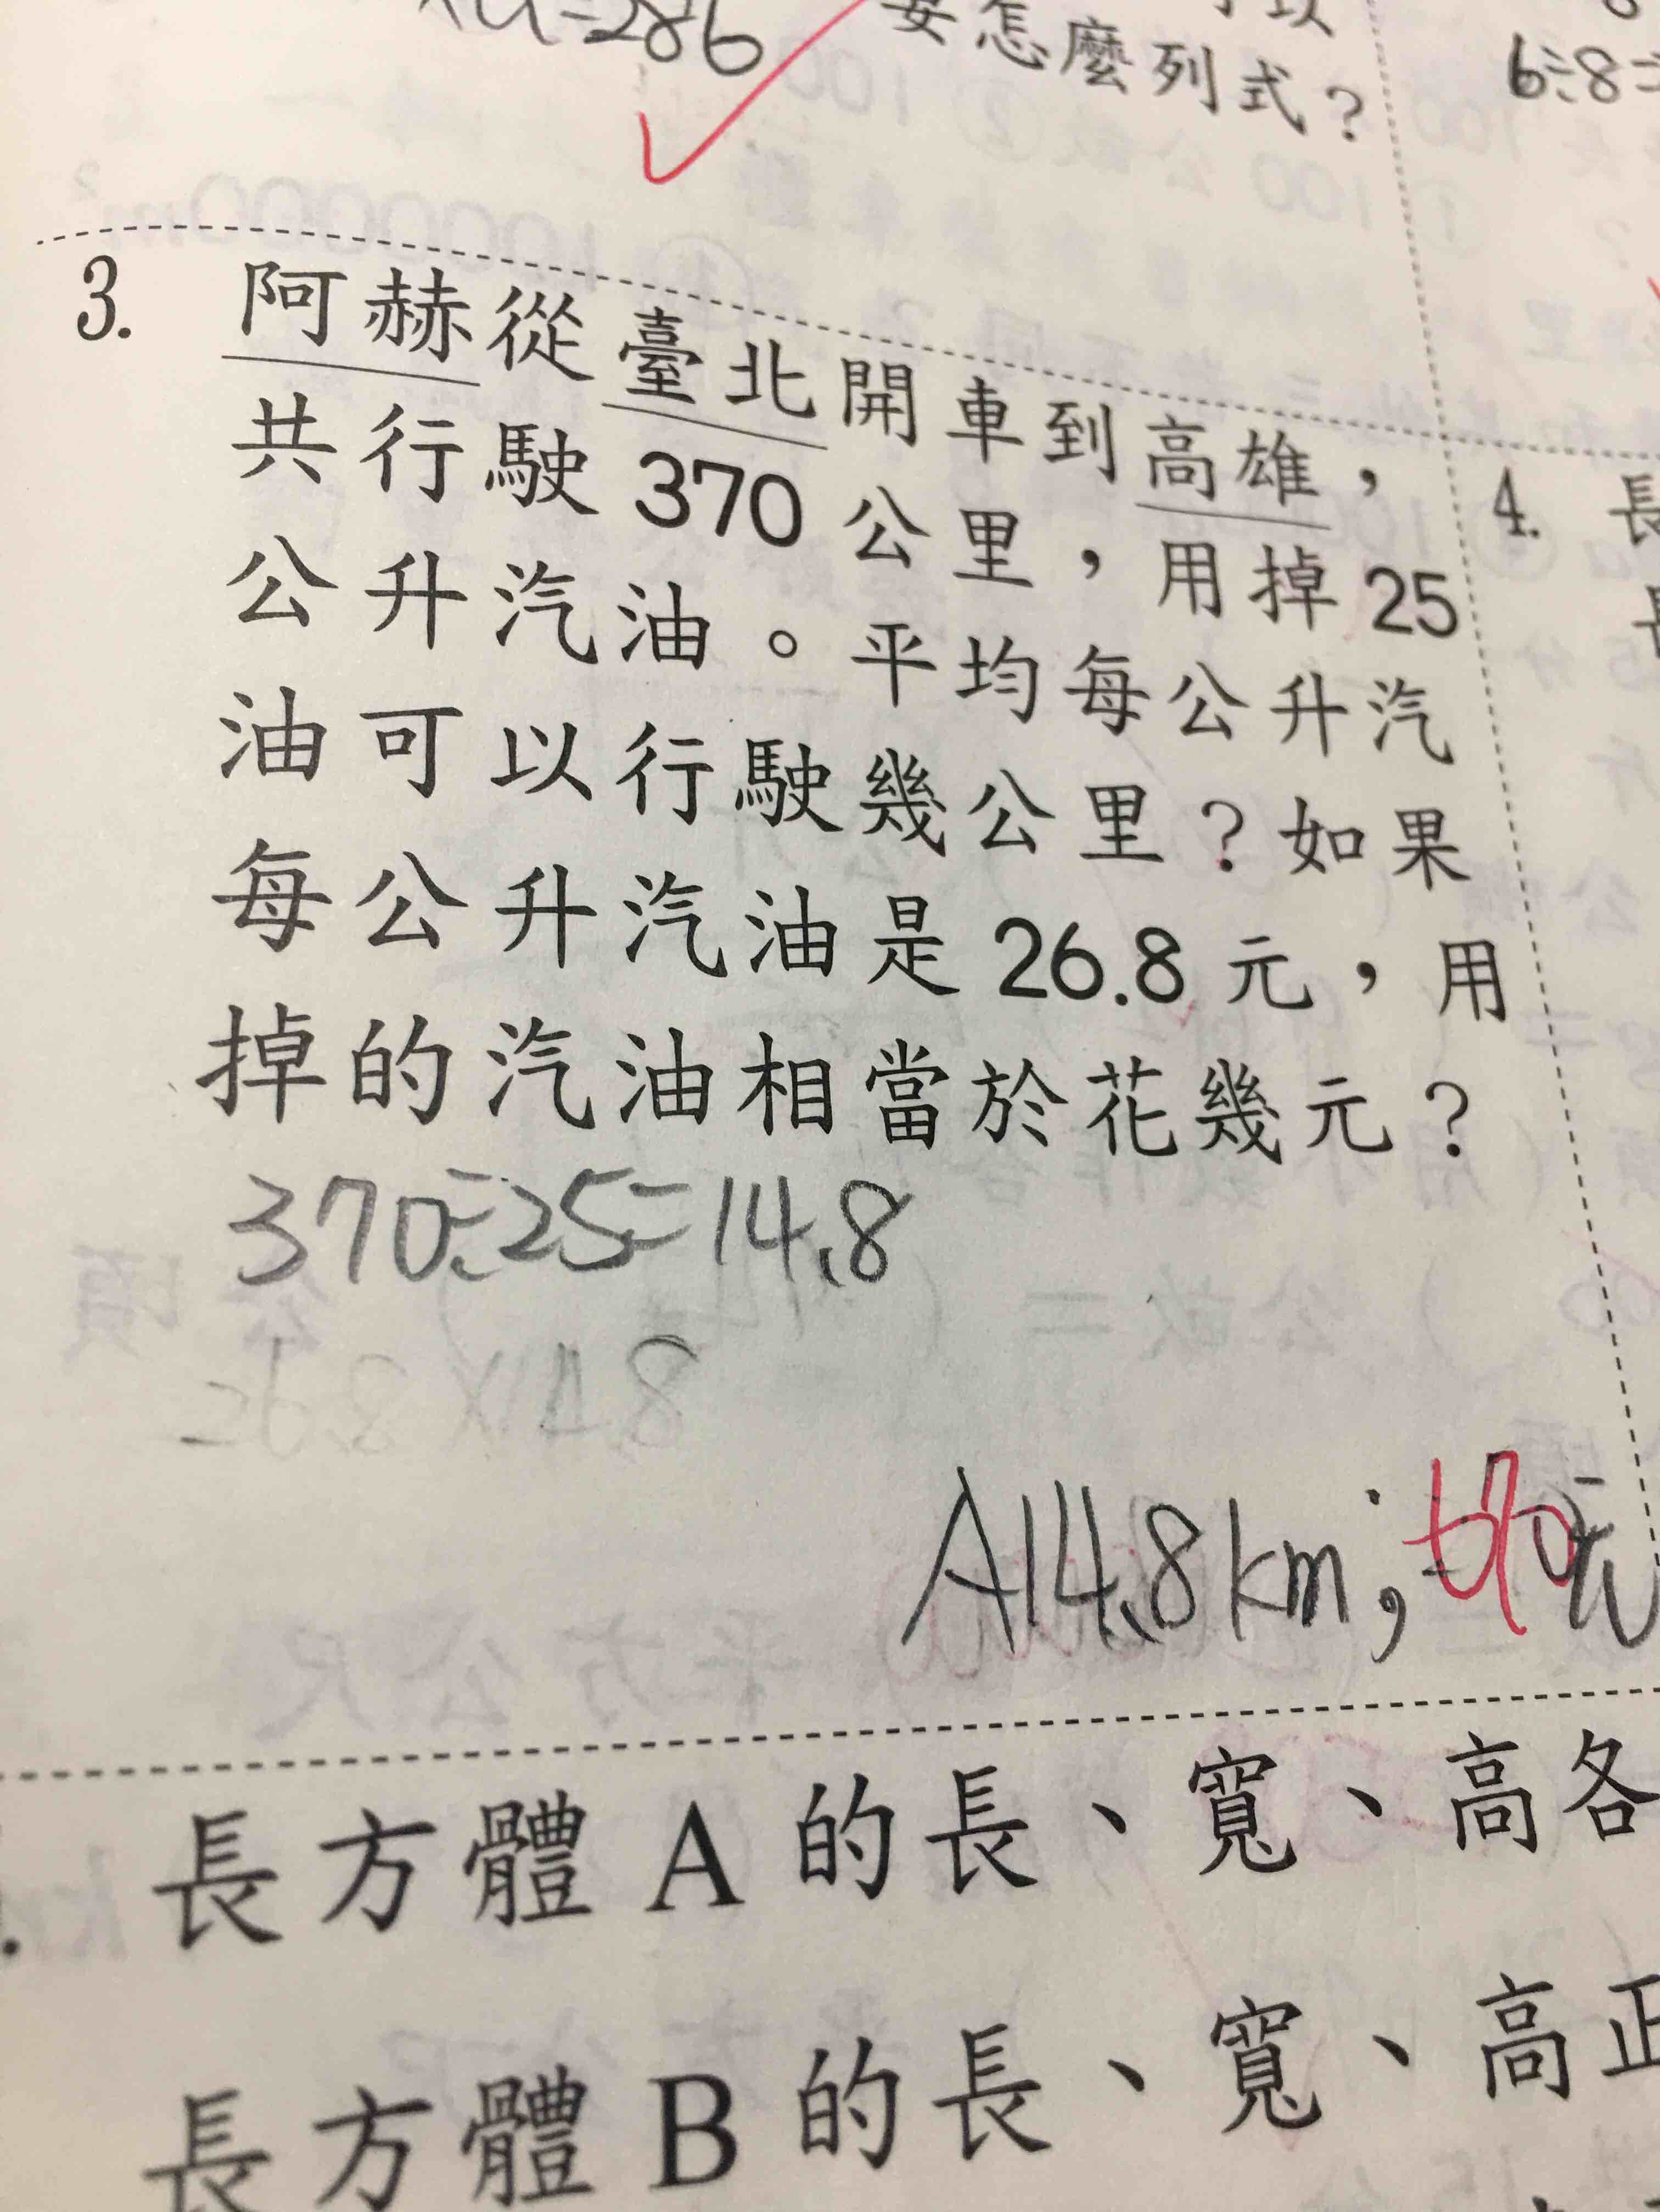 =286
要怎麼列式？
6÷8=
3. 阿赫從臺北開車到高雄，
共行駛 370 公里，用掉 25
公升汽油。平均每公升汽
油可以行駛幾公里？如果
每公升汽油是 26.8 元，用
掉的汽油相當於花幾元？
370÷25=14.8
A14.8km；670元
4. 長
長方體 A 的長、寬、高各
長方體 B 的長、寬、高正